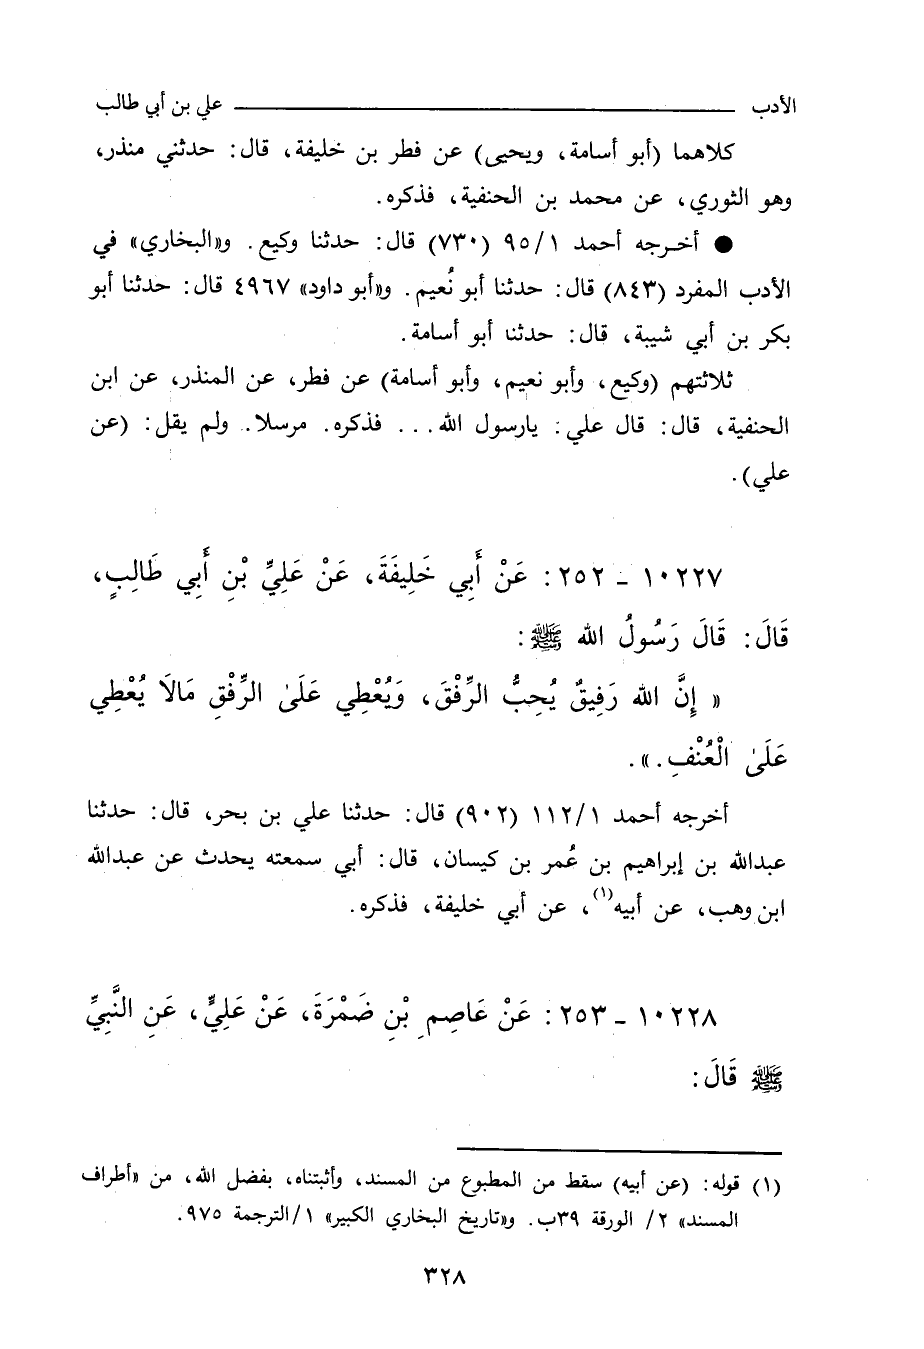 الأدب ـــــــ علي بن أبي طالب
كلاهما (أبو أسامة، ويحيى) عن فطر بن خليفة، قال: حدثني منذر،
وهو الثوري، عن محمد بن الحنفية، فذكره.
● أخرجه أحمد ٩٥/١ (٧٣٠) قال: حدثنا وكيع. و«البخاري» في
الأدب المفرد (٨٤٣) قال: حدثنا أبو نُعيم. و«أبو داود» ٤٩٦٧ قال: حدثنا أبو
بكر بن أبي شيبة، قال: حدثنا أبو أسامة.
ثلاثتهم (وكيع، وأبو نعيم، وأبو أسامة) عن فطر، عن المنذر، عن ابن
الحنفية، قال: قال علي: يارسول الله... فذكره. مرسلا. ولم يقل: (عن
علي).
١٠٢٢٧ ـ ٢٥٢: عَنْ أَبِي خَلِيفَةَ، عَنْ عَلِيِّ بْنِ أَبِي طَالِبٍ،
قَالَ: قَالَ رَسُولُ الله ﷺ:
« إِنَّ الله رَفِيقٌ يُحِبُّ الرِّفْقَ، وَيُعْطِي عَلَىٰ الرِّفْقِ مَالاَ يُعْطِي
عَلَىٰ الْعُنْفِ.».
أخرجه أحمد ١١٢/١ (٩٠٢) قال: حدثنا علي بن بحر، قال: حدثنا
عبدالله بن إبراهيم بن عُمر بن كيسان، قال: أبي سمعته يحدث عن عبدالله
ابن وهب، عن أبيه(١)، عن أبي خليفة، فذكره.
١٠٢٢٨ ـ ٢٥٣: عَنْ عَاصِمِ بْنِ ضَمْرَةَ، عَنْ عَلِيٍّ، عَنِ النَّبِيِّ
ﷺ قَالَ:
(١) قوله: (عن أبيه) سقط من المطبوع من المسند، وأثبتناه، بفضل الله، من «أطراف
المسند» ٢/ الورقة ٣٩ب. و«تاريخ البخاري الكبير» ١/الترجمة ٩٧٥.
٣٢٨